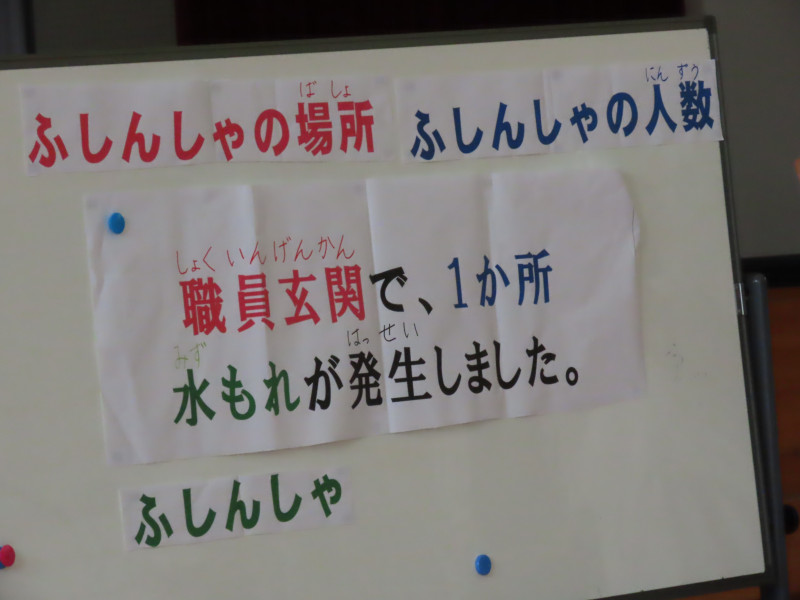 ばしょ
ふしんしゃの場所
にんずう
ふしんしゃの人数
しょくいんげんかん
職員玄関で、1か所
みず はっせい
水もれが発生しました。
ふしんしゃ